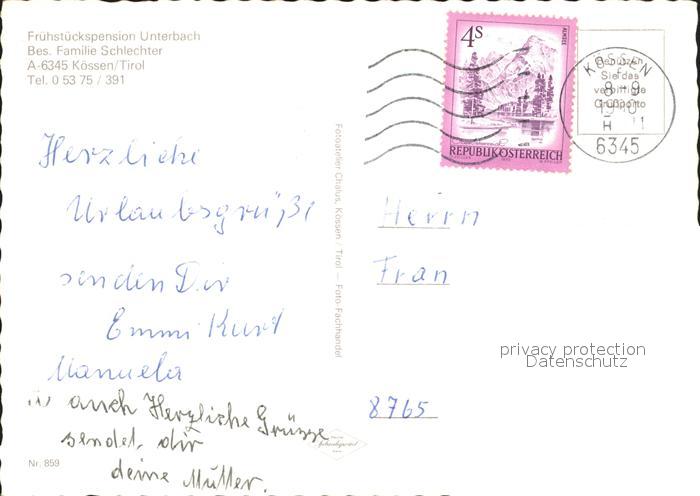 Frühstückspension Unterbach
Bes. Familie Schlechter
A-6345 Kössen/Tirol
Tel. 0 53 75 / 391
4S
ALMSEE
REPUBLIK ÖSTERREICH
KÖSSEN
6345
Benutzen
Sie das
verbilligte
Grußporto
Herzliche
Urlaubsgrüße
senden Dir
Emmi Kurt
Manuela
auch Herzliche Grüsse
sendet dir
deine Mutter.
Nr. 859
Fotoatelier Chalus, Kössen / Tirol — Foto-Fachhandel
Herrn
Frau
8765
privacy protection
Datenschutz